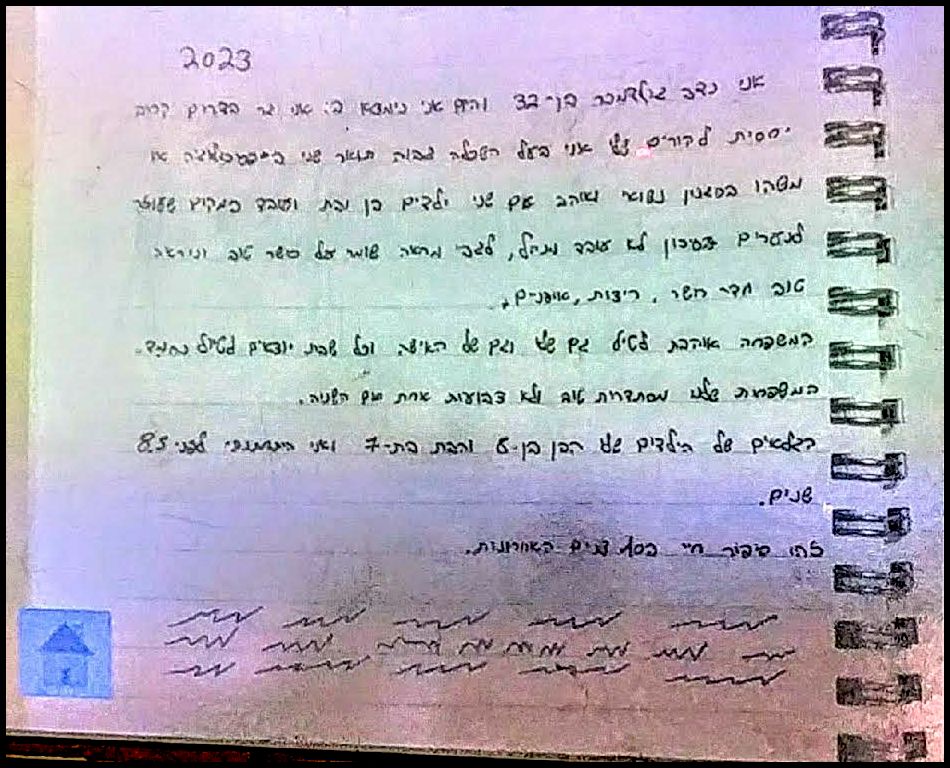 2023
אני נדב גולדמכר בן-32 והיום אני נימצא ב: אני גר בדרום קרוב
יחסית להורים שלי אני בעל השכלה גבוה תואר שני או
משהו בסגנון נשוי ואוהב עם שני ילדים בן ובת ועובד במקום שעוזר
לנערים בסיכון לא עובד מתחיל, לגבי מראה שומר על כושר טוב ונראה
טוב חדר כושר, ריצות, אופניים.
המשפחה אוהבת לטייל גם שלי וגם של האישה וכל שבת יוצאים לטיול נחמד.
המשפחות שלנו מסתדרות טוב ולא צבועות אחת עם השניה.
הגילאים של הילדים שלי הבן בן-5 והבת בת-7 ואני התחתנתי לפני 8.5
שנים.
זהו סיפור חיי שנים האחרונות.